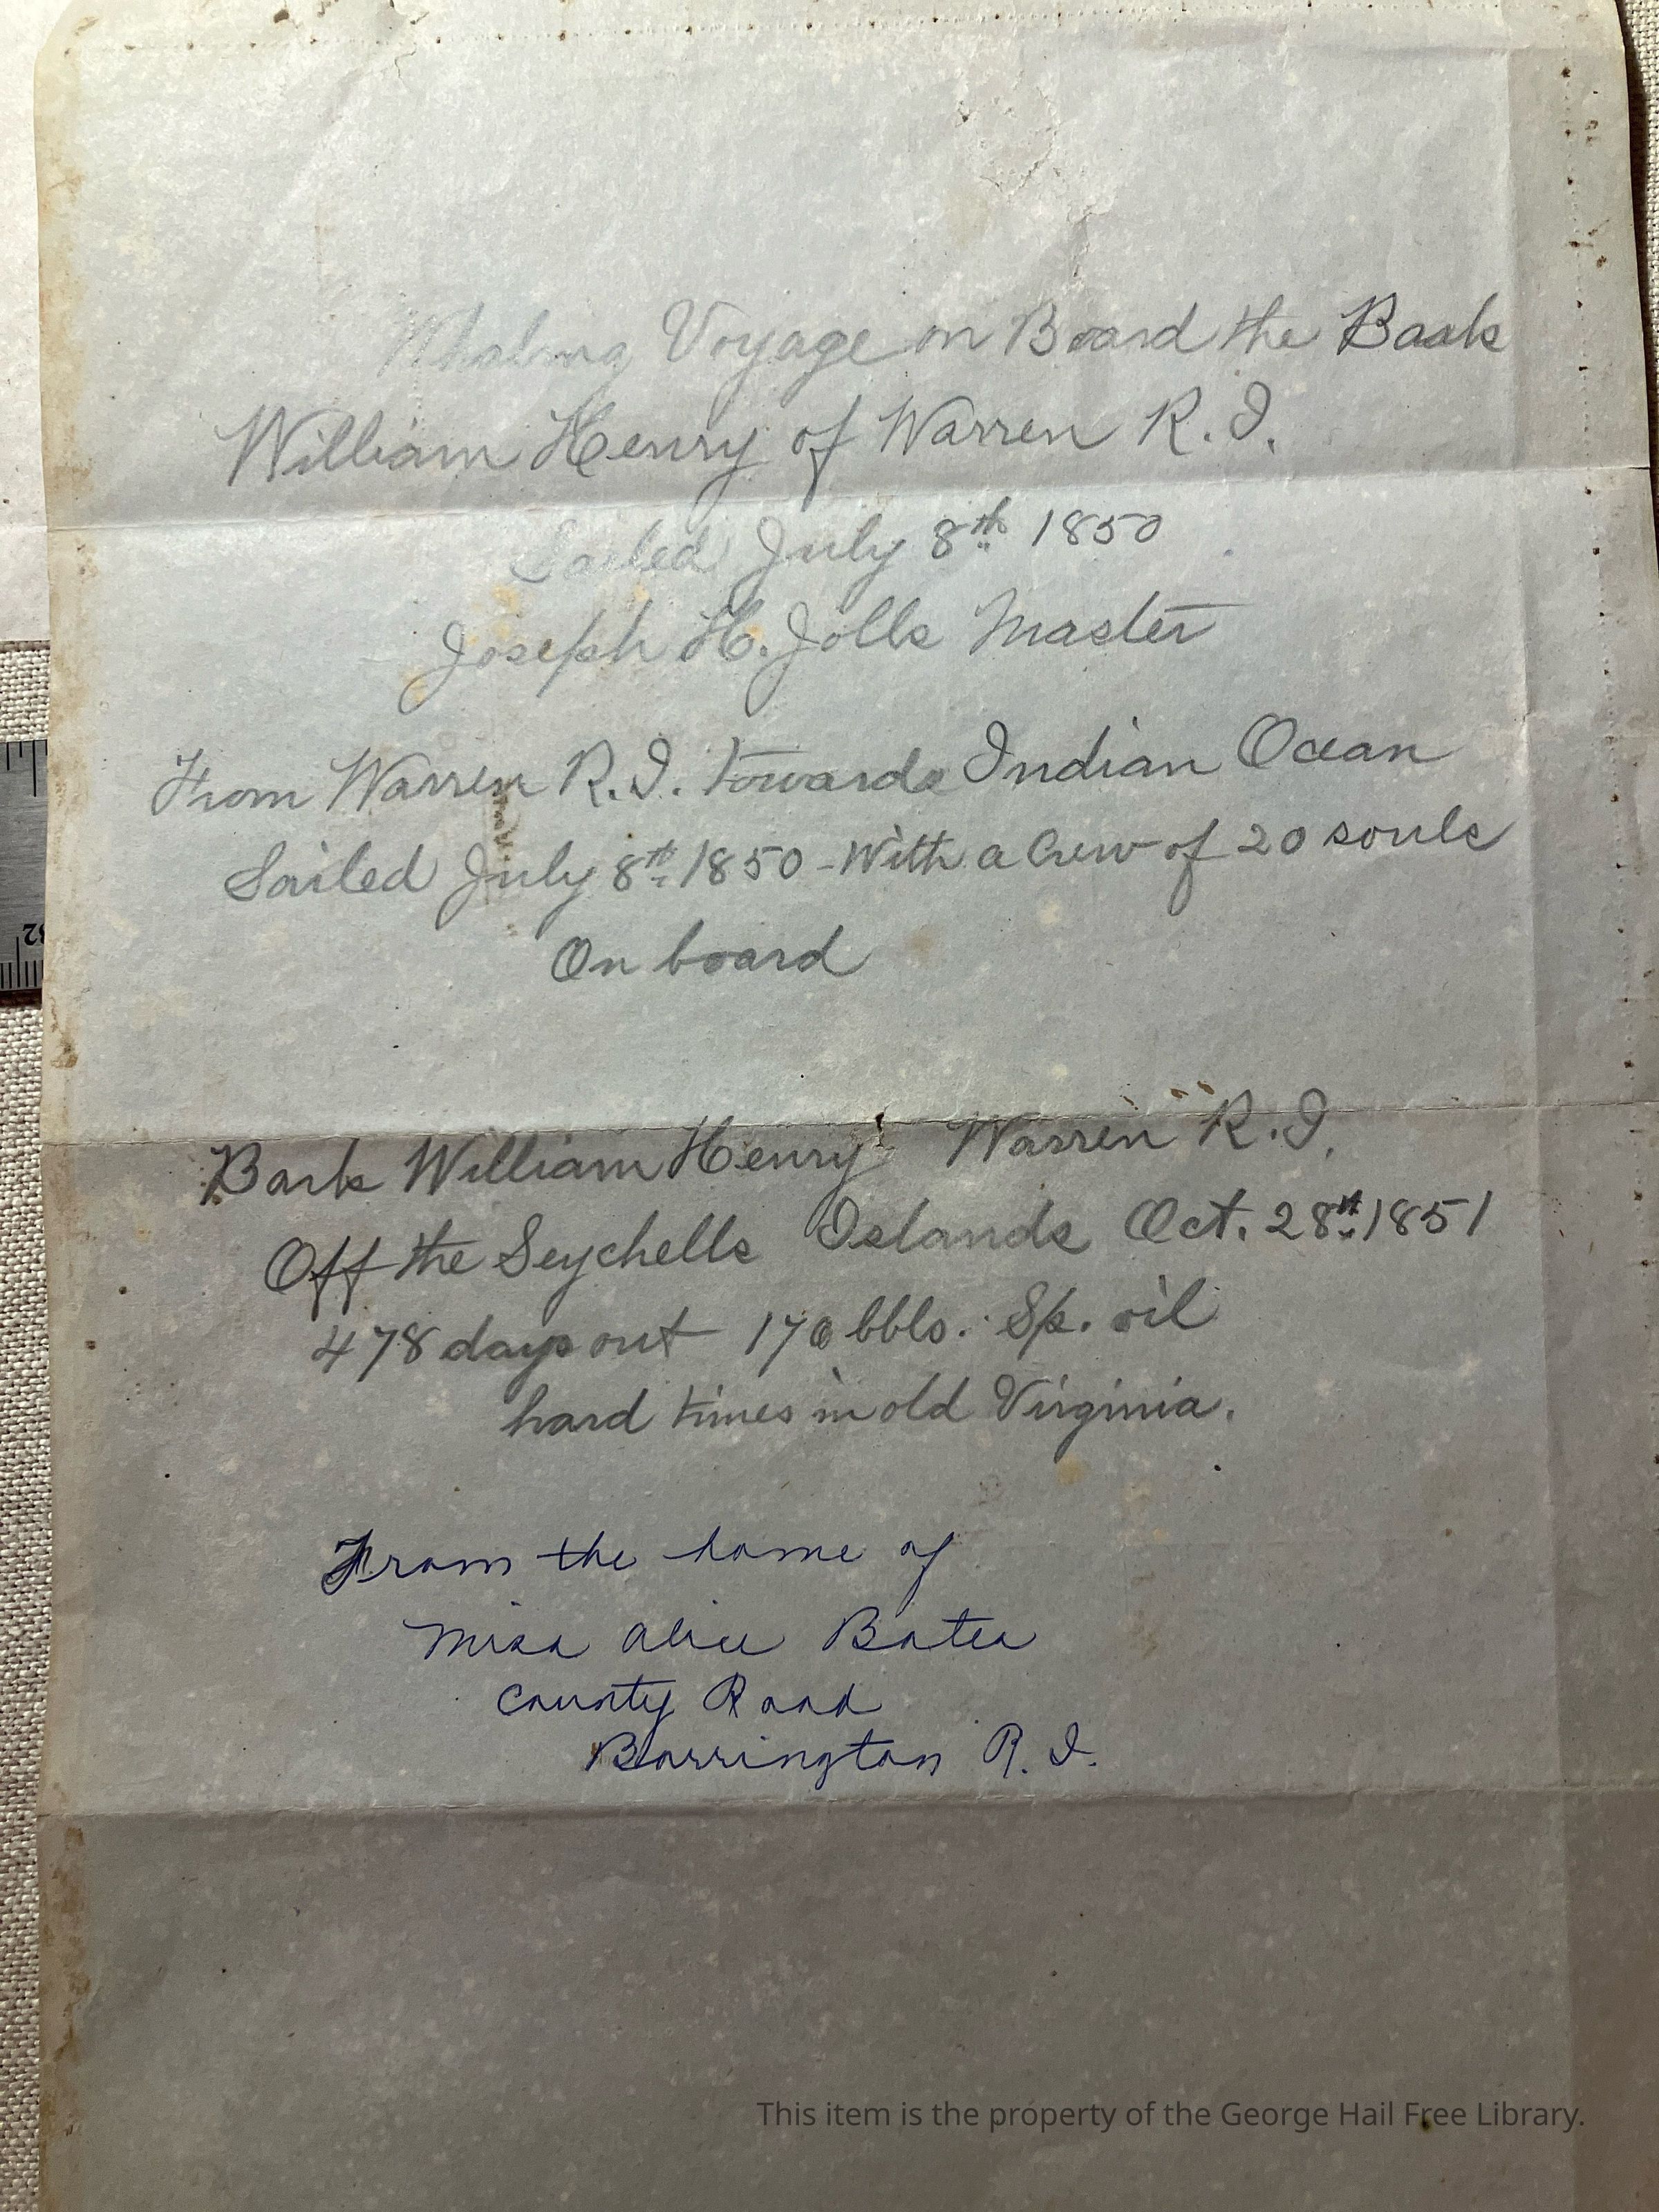 Whaling Voyage on Board the Bark
William Henry of Warren R.I.
Sailed July 8th 1850
Joseph H. Jolls Master
From Warren R.I. towards Indian Ocean
Sailed July 8th 1850 - With a Crew of 20 souls
On board
Bark William Henry Warren R.I.
Off the Seychells Islands Oct. 28th 1851
478 days out 170 bbls. Sp. oil
hard times in old Virginia.
From the home of
Miss Alice Bates
County Road
Barrington R.I.
32
This item is the property of the George Hail Free Library.